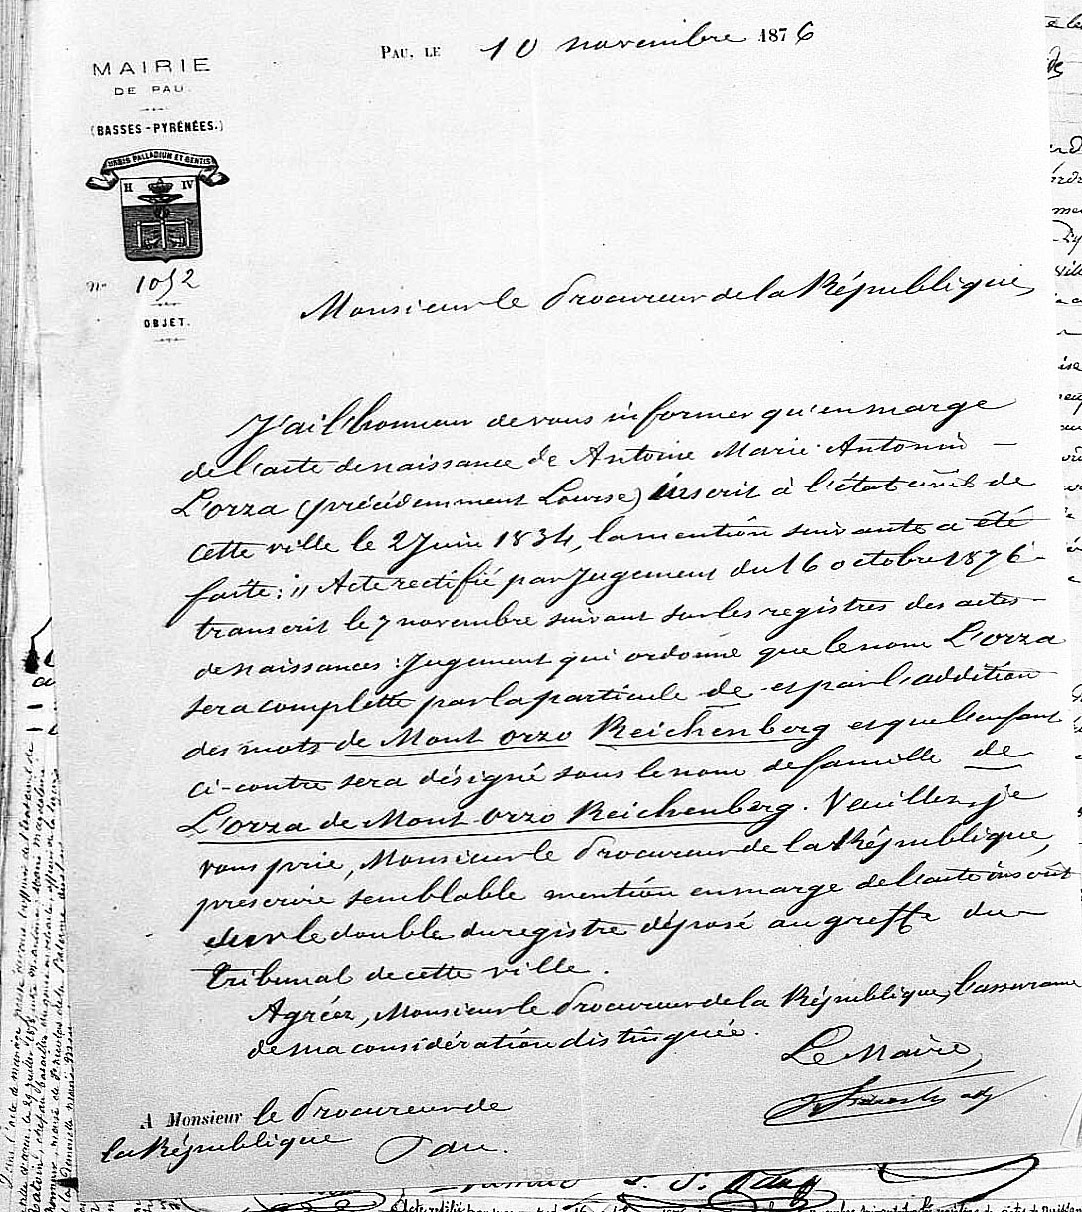 PAU, LE 10 novembre 1876
MAIRIE
DE PAU
(BASSES-PYRÉNÉES.)
URBIS PALLADIUM ET GENTIS
H IV
No 1052
OBJET.
Monsieur le Procureur de la République,
J'ai l'honneur de vous informer qu'en marge
de l'acte de naissance de Antoine Marie Antonin
L'orza (précédemment Louise) inscrit à l'état civil de
cette ville le 2 Juin 1834, la mention suivante a été
faite : " Acte rectifié par Jugement du 16 octobre 1876
transcrit le 7 novembre suivant sur les registres des actes
de naissances : Jugement qui ordonne que le nom L'orza
sera completté par la particule de et par l'addition
des mots de Mont orzo Reichenberg et que l'enfant
ci-contre sera désigné sous le nom de famille de
L'orza de Mont orzo Reichenberg. Veuillez, je
vous prie, Monsieur le Procureur de la République,
prescrire semblable mention en marge de l'acte inscrit
sur le double du registre déposé au greffe du
Tribunal de cette ville.
Agréez, Monsieur le Procureur de la République, l'assurance
de ma considération distinguée.
Le Maire,
A Monsieur le Procureur de
la République Pau.
159